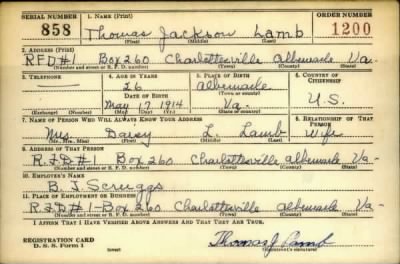 SERIAL NUMBER 1. NAME (Print) ORDER NUMBER
858 Thomas Jackson Lamb 1200
(First) (Middle) (Last)
2. ADDRESS (Print)
RFD#1 Box 260 Charlottesville Albemarle Va.
(Number and street or R. F. D. number) (Town) (County) (State)
3. TELEPHONE 4. AGE IN YEARS 5. PLACE OF BIRTH 6. COUNTRY OF CITIZENSHIP
— 26 Albemarle
DATE OF BIRTH (Town or county)
May 17 1914 Va. U.S.
(Exchange) (Number) (Mo.) (Day) (Yr.) (State or country)
7. NAME OF PERSON WHO WILL ALWAYS KNOW YOUR ADDRESS 8. RELATIONSHIP OF THAT PERSON
Mrs. Daisy L. Lamb Wife
(Mr., Mrs., Miss) (First) (Middle) (Last)
9. ADDRESS OF THAT PERSON
R.F.D#1 Box 260 Charlottesville Albemarle Va.-
(Number and street or R. F. D. number) (Town) (County) (State)
10. EMPLOYER'S NAME
B. J. Scruggs
11. PLACE OF EMPLOYMENT OR BUSINESS
R.F.D#1-Box 260 Charlottesville Albemarle Va-
(Number and street or R. F. D. number) (Town) (County) (State)
I AFFIRM THAT I HAVE VERIFIED ABOVE ANSWERS AND THAT THEY ARE TRUE.
REGISTRATION CARD
D. S. S. Form 1 (over) Thomas J Lamb
(Registrant's signature)